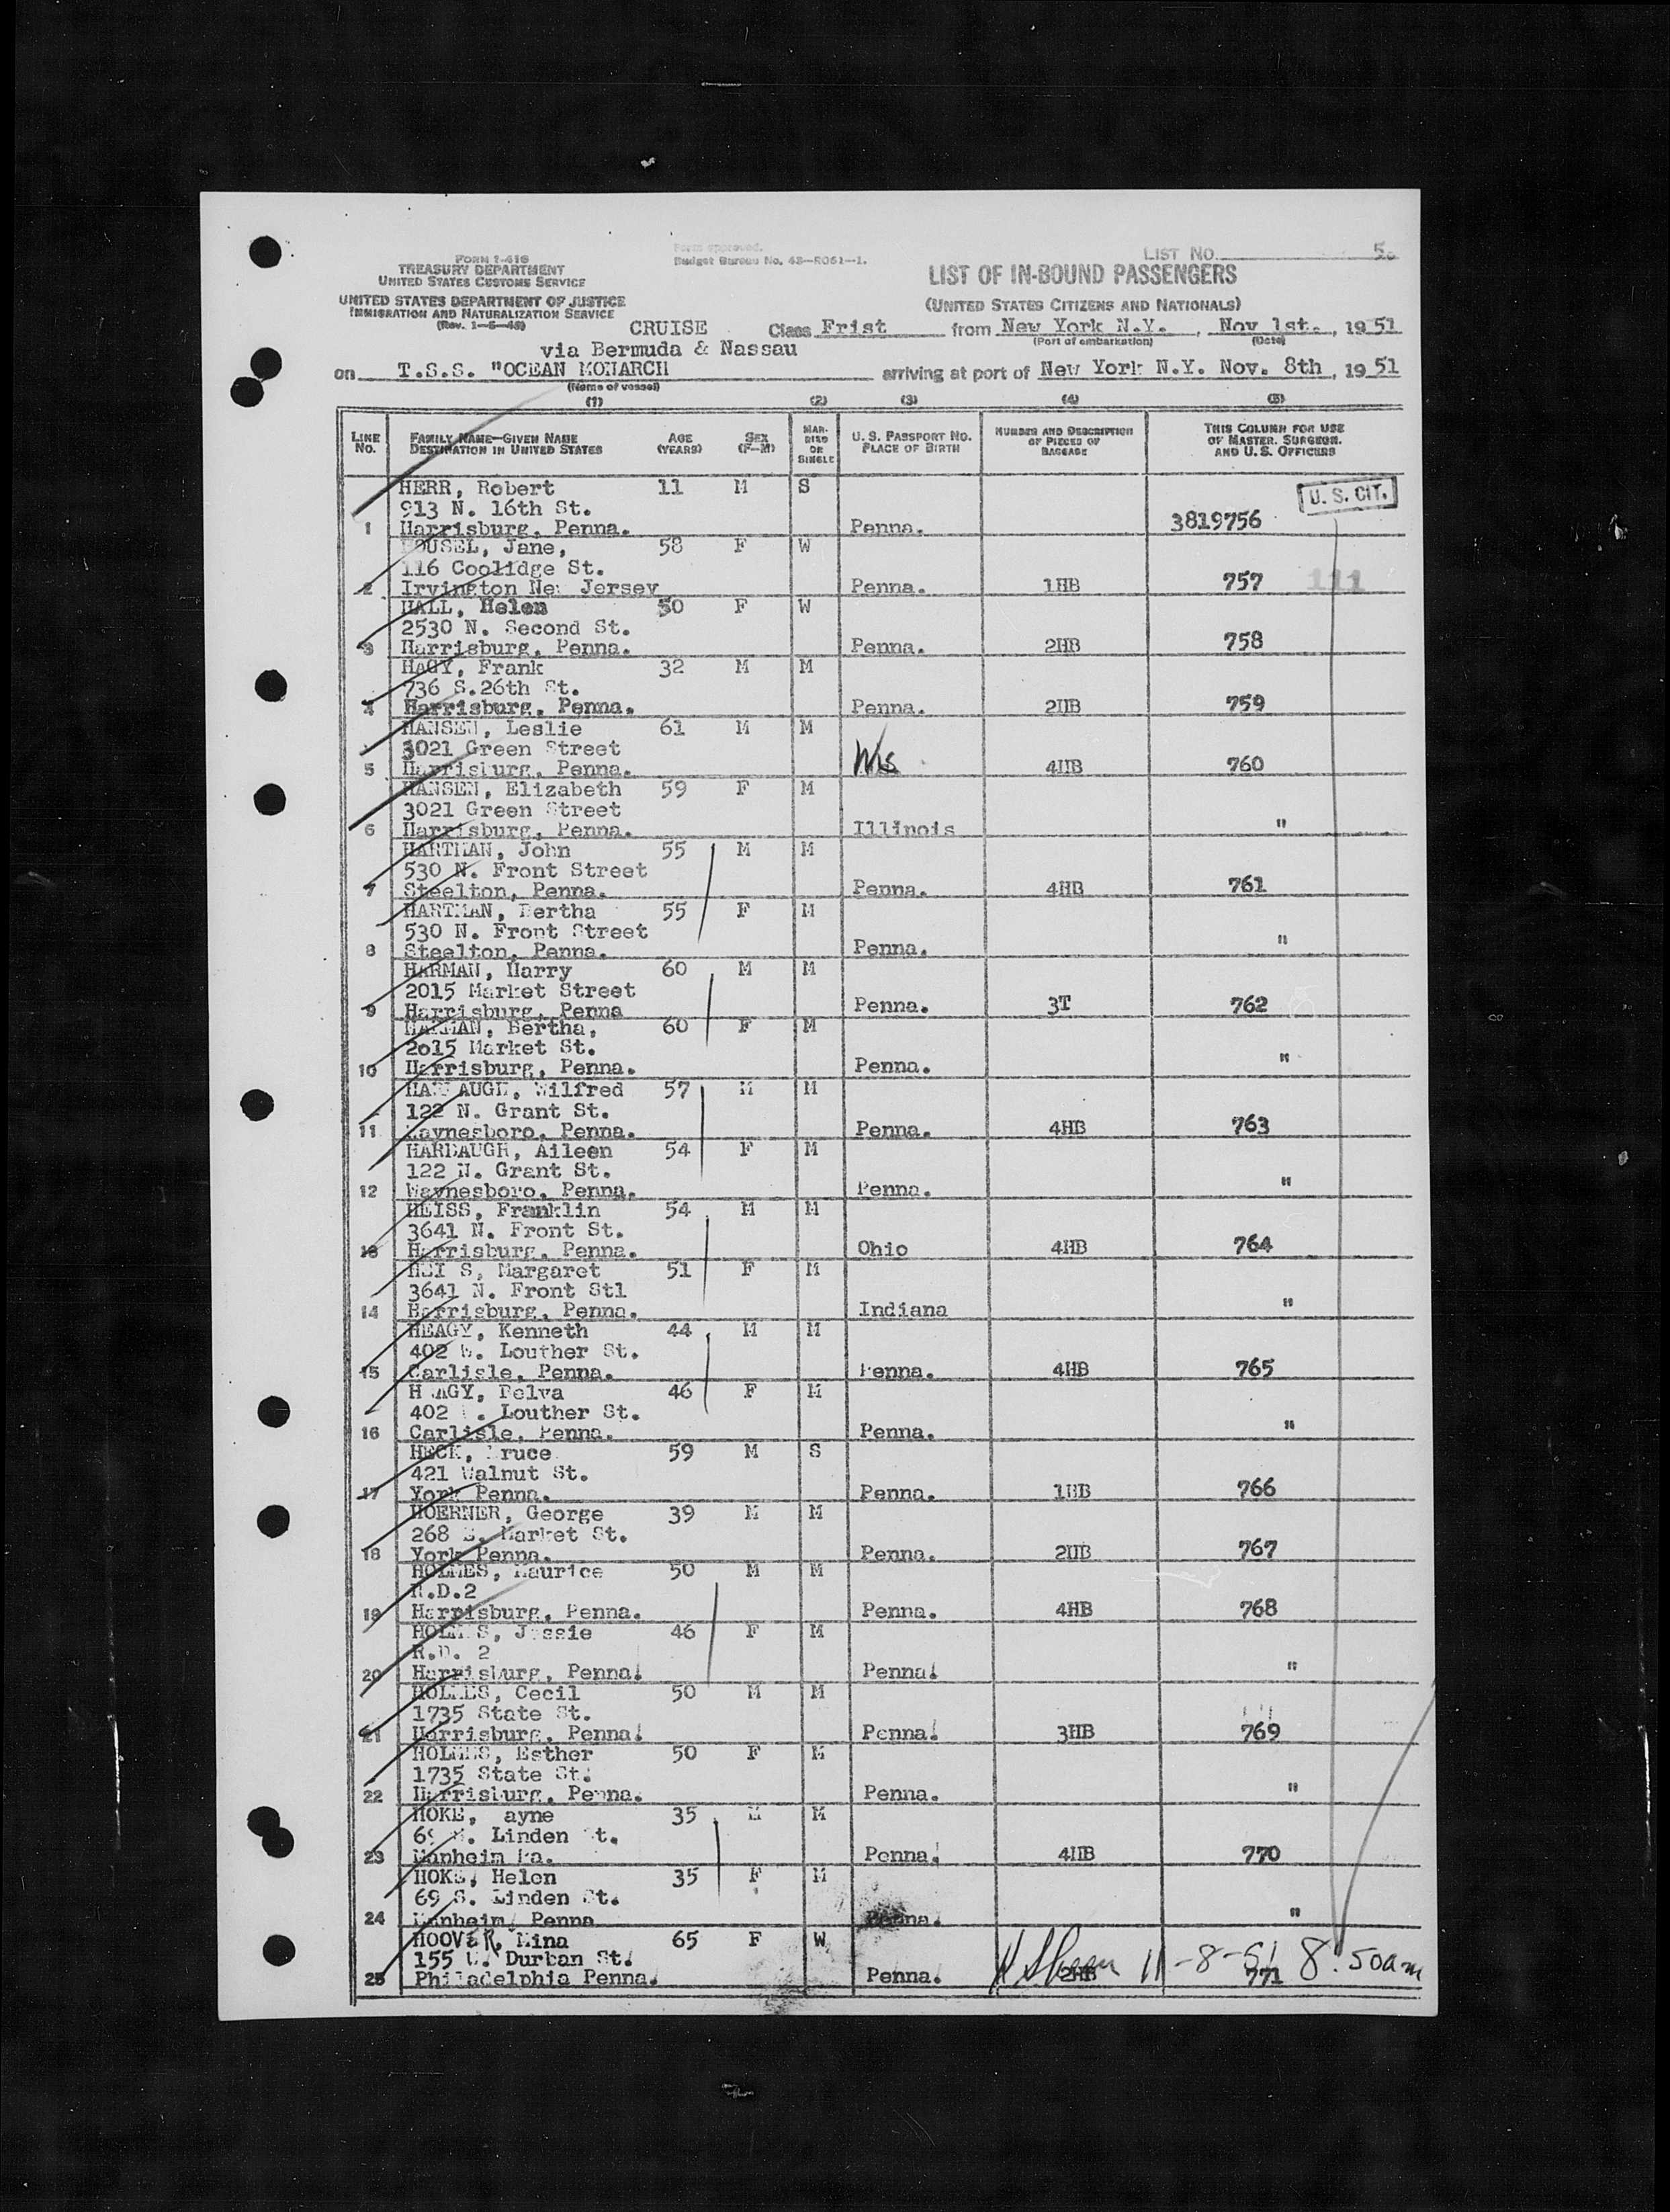 FORM I-418
TREASURY DEPARTMENT
UNITED STATES CUSTOMS SERVICE
UNITED STATES DEPARTMENT OF JUSTICE
IMMIGRATION AND NATURALIZATION SERVICE
Form approved.
Budget Bureau No. 43-R061-1.
LIST NO. 5.
LIST OF IN-BOUND PASSENGERS
(UNITED STATES CITIZENS AND NATIONALS)
CRUISE Class Frist from New York N.Y., Nov 1st., 1951
(Port of embarkation) (Date)
via Bermuda & Nassau
on T.S.S. "OCEAN MONARCH arriving at port of New York N.Y. Nov. 8th, 1951
(Name of vessel)
(1) (2) (3) (4) (5)
LINE NO. FAMILY NAME—GIVEN NAME DESTINATION IN UNITED STATES AGE (YEARS) SEX (F-M) MARRIED OR SINGLE U. S. PASSPORT NO. PLACE OF BIRTH NUMBER AND DESCRIPTION OF PIECES OF BAGGAGE THIS COLUMN FOR USE OF MASTER, SURGEON, AND U. S. OFFICERS
HERR, Robert 11 M S U. S. CIT.
913 N. 16th St.
1 Harrisburg, Penna. Penna. 3819756
HOUSEL, Jane, 58 F W
116 Coolidge St.
2 Irvington New Jersey Penna. 1HB 757 111
HALL, Helen 50 F W
2530 N. Second St.
3 Harrisburg, Penna. Penna. 2HB 758
HAGY, Frank 32 M M
736 S.26th St.
4 Harrisburg, Penna. Penna. 2HB 759
HANSEN, Leslie 61 M M
3021 Green Street
5 Harrisburg, Penna. Wis 4HB 760
HANSEN, Elizabeth 59 F M
3021 Green Street
6 Harrisburg, Penna. Illinois "
HARTMAN, John 55 M M
530 N. Front Street
7 Steelton, Penna. Penna. 4HB 761
HARTMAN, Bertha 55 F M
530 N. Front Street
8 Steelton, Penna. Penna. "
HARMAN, Harry 60 M M
2015 Market Street
9 Harrisburg, Penna Penna. 3T 762
HARMAN, Bertha, 60 F M
2o15 Market St.
10 Harrisburg, Penna. Penna. "
HARBAUGH, Wilfred 57 M M
122 N. Grant St.
11 Waynesboro, Penna. Penna. 4HB 763
HARBAUGH, Aileen 54 F M
122 N. Grant St.
12 Waynesboro, Penna. Penna. "
HEISS, Franklin 54 M M
3641 N. Front St.
13 Harrisburg, Penna. Ohio 4HB 764
HEISS, Margaret 51 F M
3641 N. Front Stl
14 Harrisburg, Penna. Indiana "
HEAGY, Kenneth 44 M M
402 W. Louther St.
15 Carlisle, Penna. Penna. 4HB 765
HEAGY, Delva 46 F M
402 W. Louther St.
16 Carlisle, Penna. Penna. "
HECK, Bruce 59 M S
421 Walnut St.
17 York Penna. Penna. 1HB 766
HOERNER, George 39 M M
268 E. Market St.
18 York Penna. Penna. 2HB 767
HOLMES, Maurice 50 M M
R.D.2
19 Harrisburg, Penna. Penna. 4HB 768
HOLMES, Jessie 46 F M
R.D. 2
20 Harrisburg, Penna. Penna. "
HOLMES, Cecil 50 M M
1735 State St.
21 Harrisburg, Penna. Penna. 3HB 769
HOLMES, Esther 50 F M
1735 State St.
22 Harrisburg, Penna. Penna. "
HOKE, ayne 35 M M
69 S. Linden St.
23 Manheim Pa. Penna. 4HB 770
HOKE, Helen 35 F M
69 S. Linden St.
24 Manheim, Penna Penna. "
HOOVER, Mina 65 F W
155 W. Durban St.
25 Philadelphia Penna. Penna. 2HB 771
11-8-51 8:50am